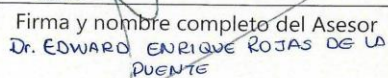 Firma y nombre completo del Asesor
Dr. EDWARD ENRIQUE ROJAS DE LA
PUENTE